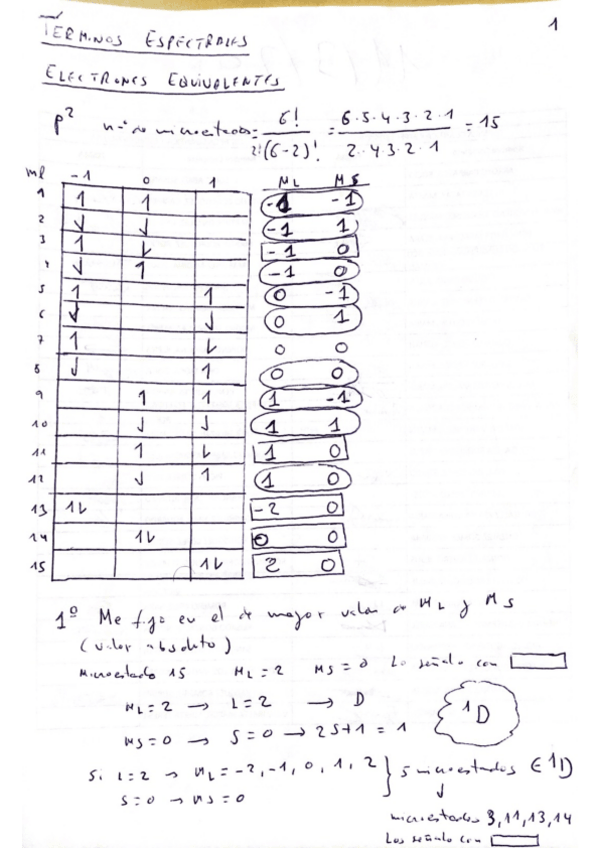 1
TÉRMINOS ESPECTRALES
ELECTRONES EQUIVALENTES
p² nº de microestados = 6! / 2!(6-2)! = 6·5·4·3·2·1 / 2·4·3·2·1 = 15
ml -1 0 1 ML MS
1 1 1 -1 -1
2 ↓ ↓ -1 1
3 1 ↓ -1 0
4 ↓ 1 -1 0
5 1 1 0 -1
6 ↓ ↓ 0 1
7 1 ↓ 0 0
8 ↓ 1 0 0
9 1 1 1 -1
10 ↓ ↓ 1 1
11 1 ↓ 1 0
12 ↓ 1 1 0
13 1↓ -2 0
14 1↓ 0 0
15 1↓ 2 0
1º Me fijo en el de mayor valor de ML y MS
(valor absoluto)
Microestado 15 ML = 2 MS = 0 Lo señalo con
ML = 2 → L = 2 → D
¹D
MS = 0 → S = 0 → 2S+1 = 1
Si L = 2 → ML = -2, -1, 0, 1, 2 } 5 microestados ∈ ¹D
S = 0 → MS = 0
↓
microestados 3, 11, 13, 14
Los señalo con